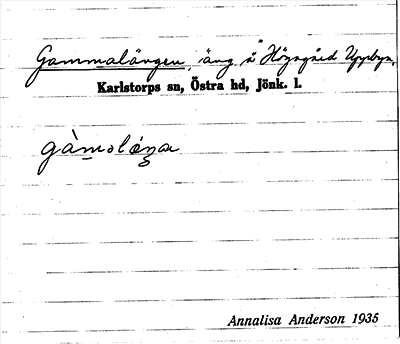 Gammalängen, äng å Högagård Uppbyn,
Karlstorps sn, Östra hd, Jönk. l.
gàmolæŋa
Annalisa Anderson 1935